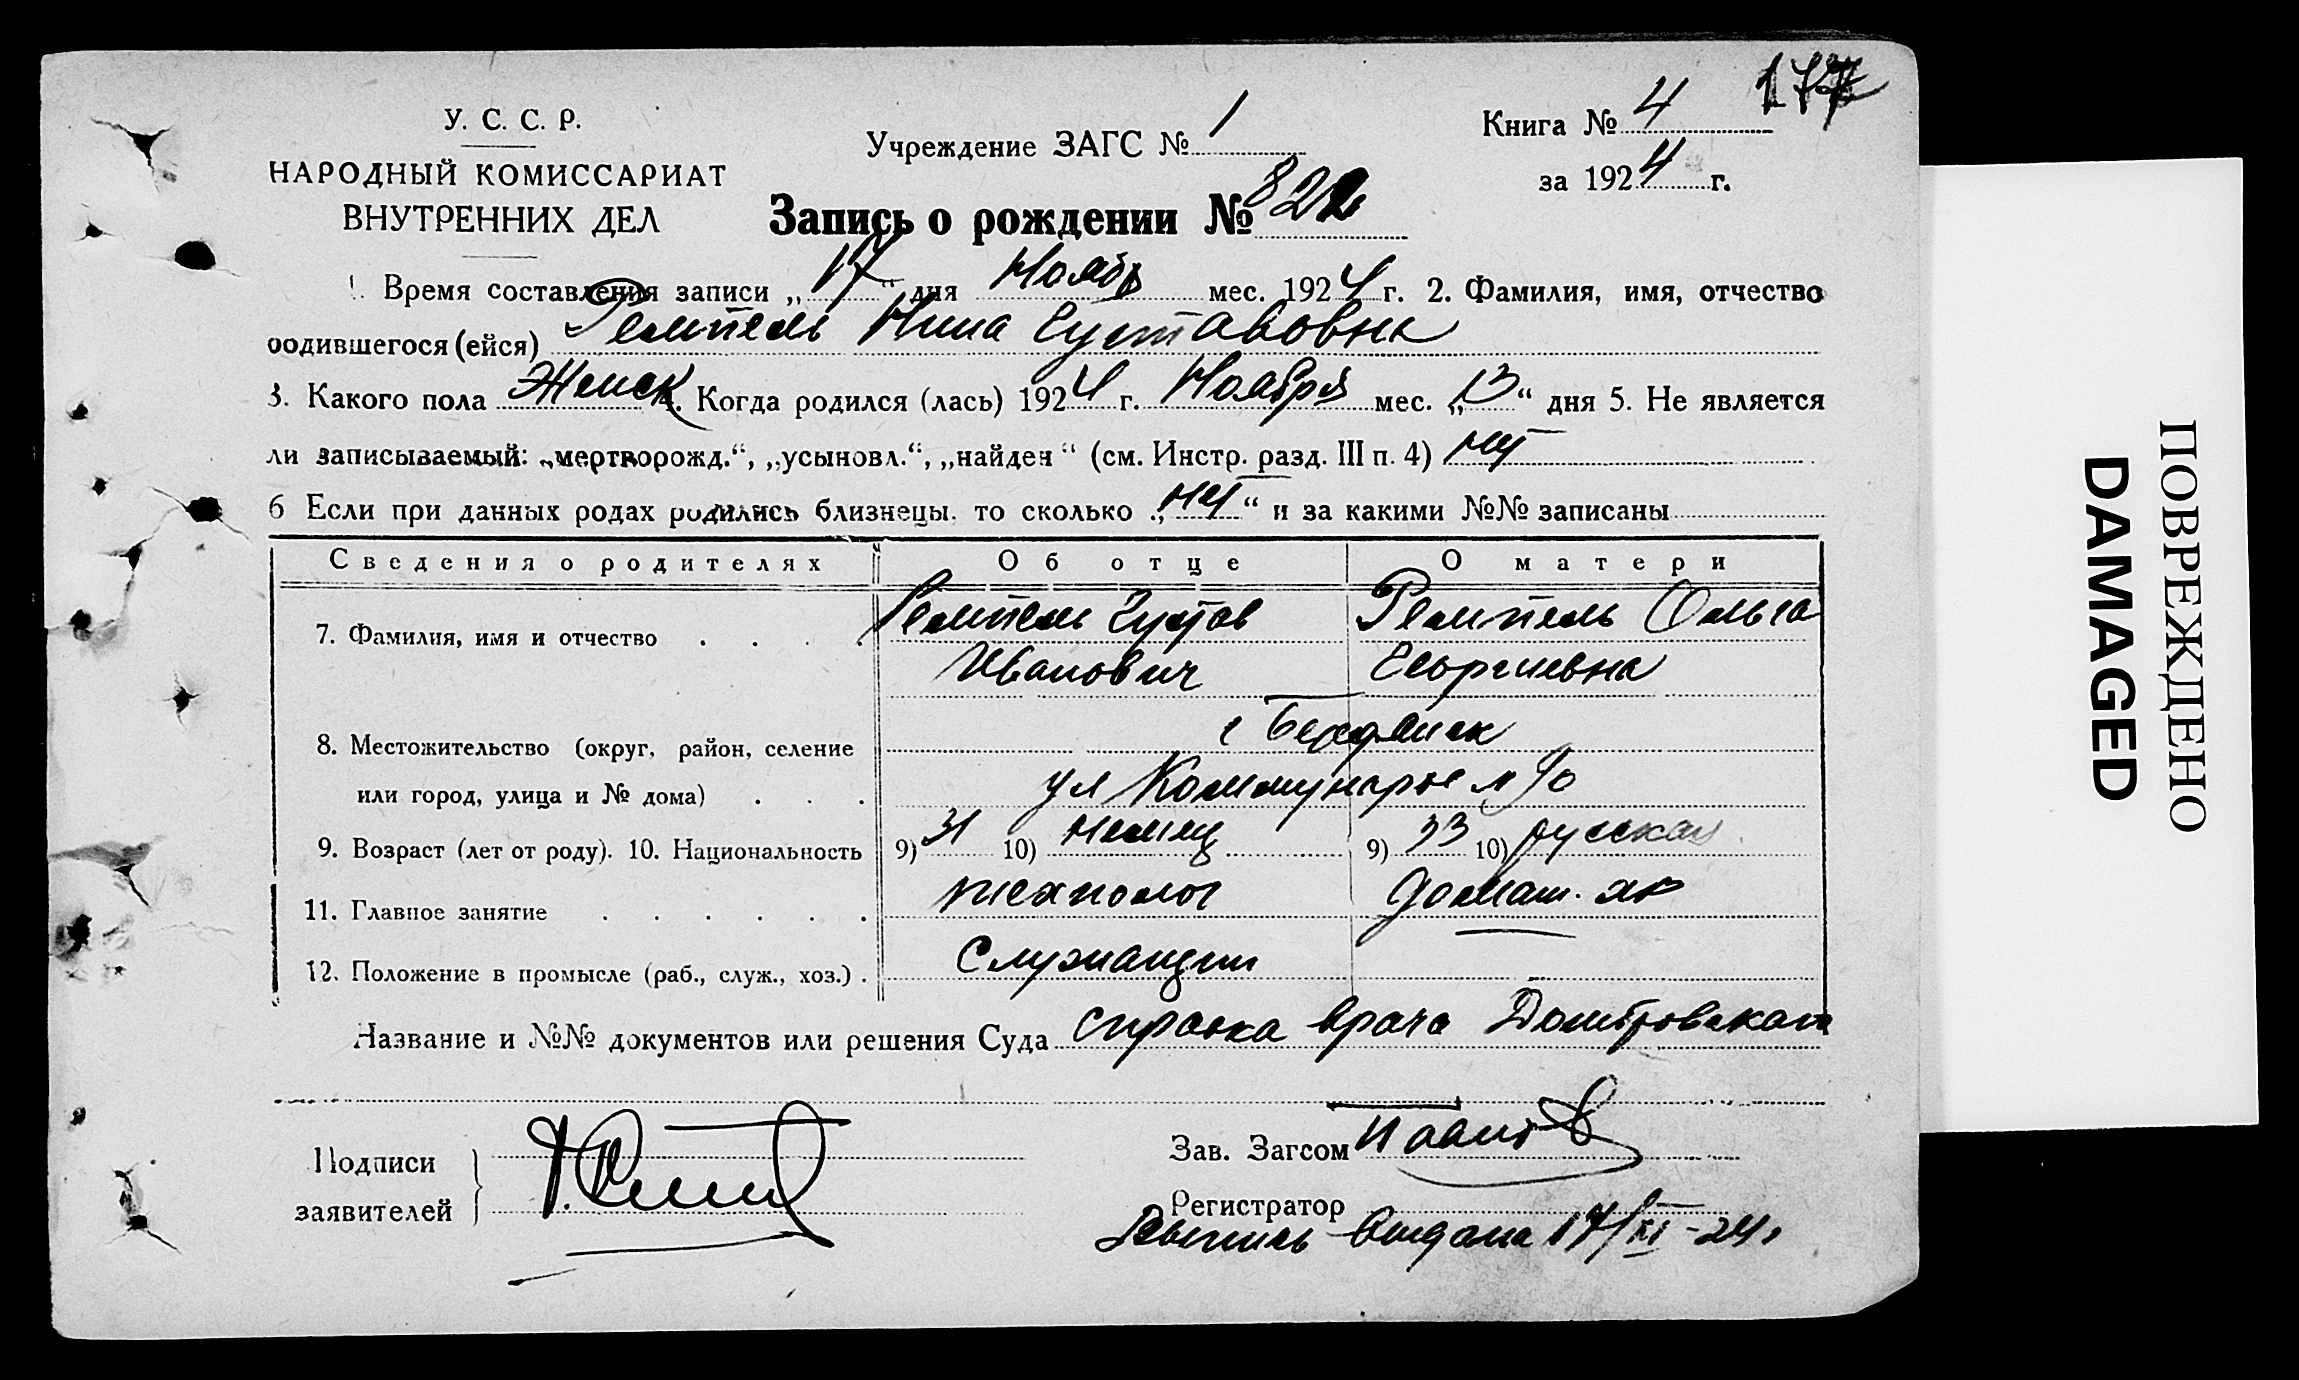 177
У. С. С. Р.
НАРОДНЫЙ КОМИССАРИАТ
ВНУТРЕННИХ ДЕЛ
Учреждение ЗАГС № 1
Книга № 4
за 1924 г.
Запись о рождении № 822
1. Время составления записи „17“ дня Ноябр мес. 1924 г. 2. Фамилия, имя, отчество
родившегося (ейся) Ремпель Нина Густавовна
3. Какого пола Женск 4. Когда родился (лась) 1924 г. Ноября мес. „13“ дня 5. Не является
ли записываемый: „мертворожд.“, „усыновл.“, „найден“ (см. Инстр. разд. III п. 4) нет
6 Если при данных родах родились близнецы, то сколько „нет“ и за какими №№ записаны
Сведения о родителях Об отце О матери
7. Фамилия, имя и отчество Ремпель Густав Ремпель Ольга
Иванович Георгиевна
8. Местожительство (округ, район, селение г Бердянск
или город, улица и № дома) ул Коммунаров
9. Возраст (лет от роду). 10. Национальность 9) 31 10) немец 9) 33 10) русская
11. Главное занятие технолог домаш. хоз
12. Положение в промысле (раб., служ., хоз.) Служащий
Название и №№ документов или решения Суда справка врача
Подписи
заявителей
Зав. Загсом
Регистратор
Выпись выдана 17/XI-24г
ПОВРЕЖДЕНО
DAMAGED